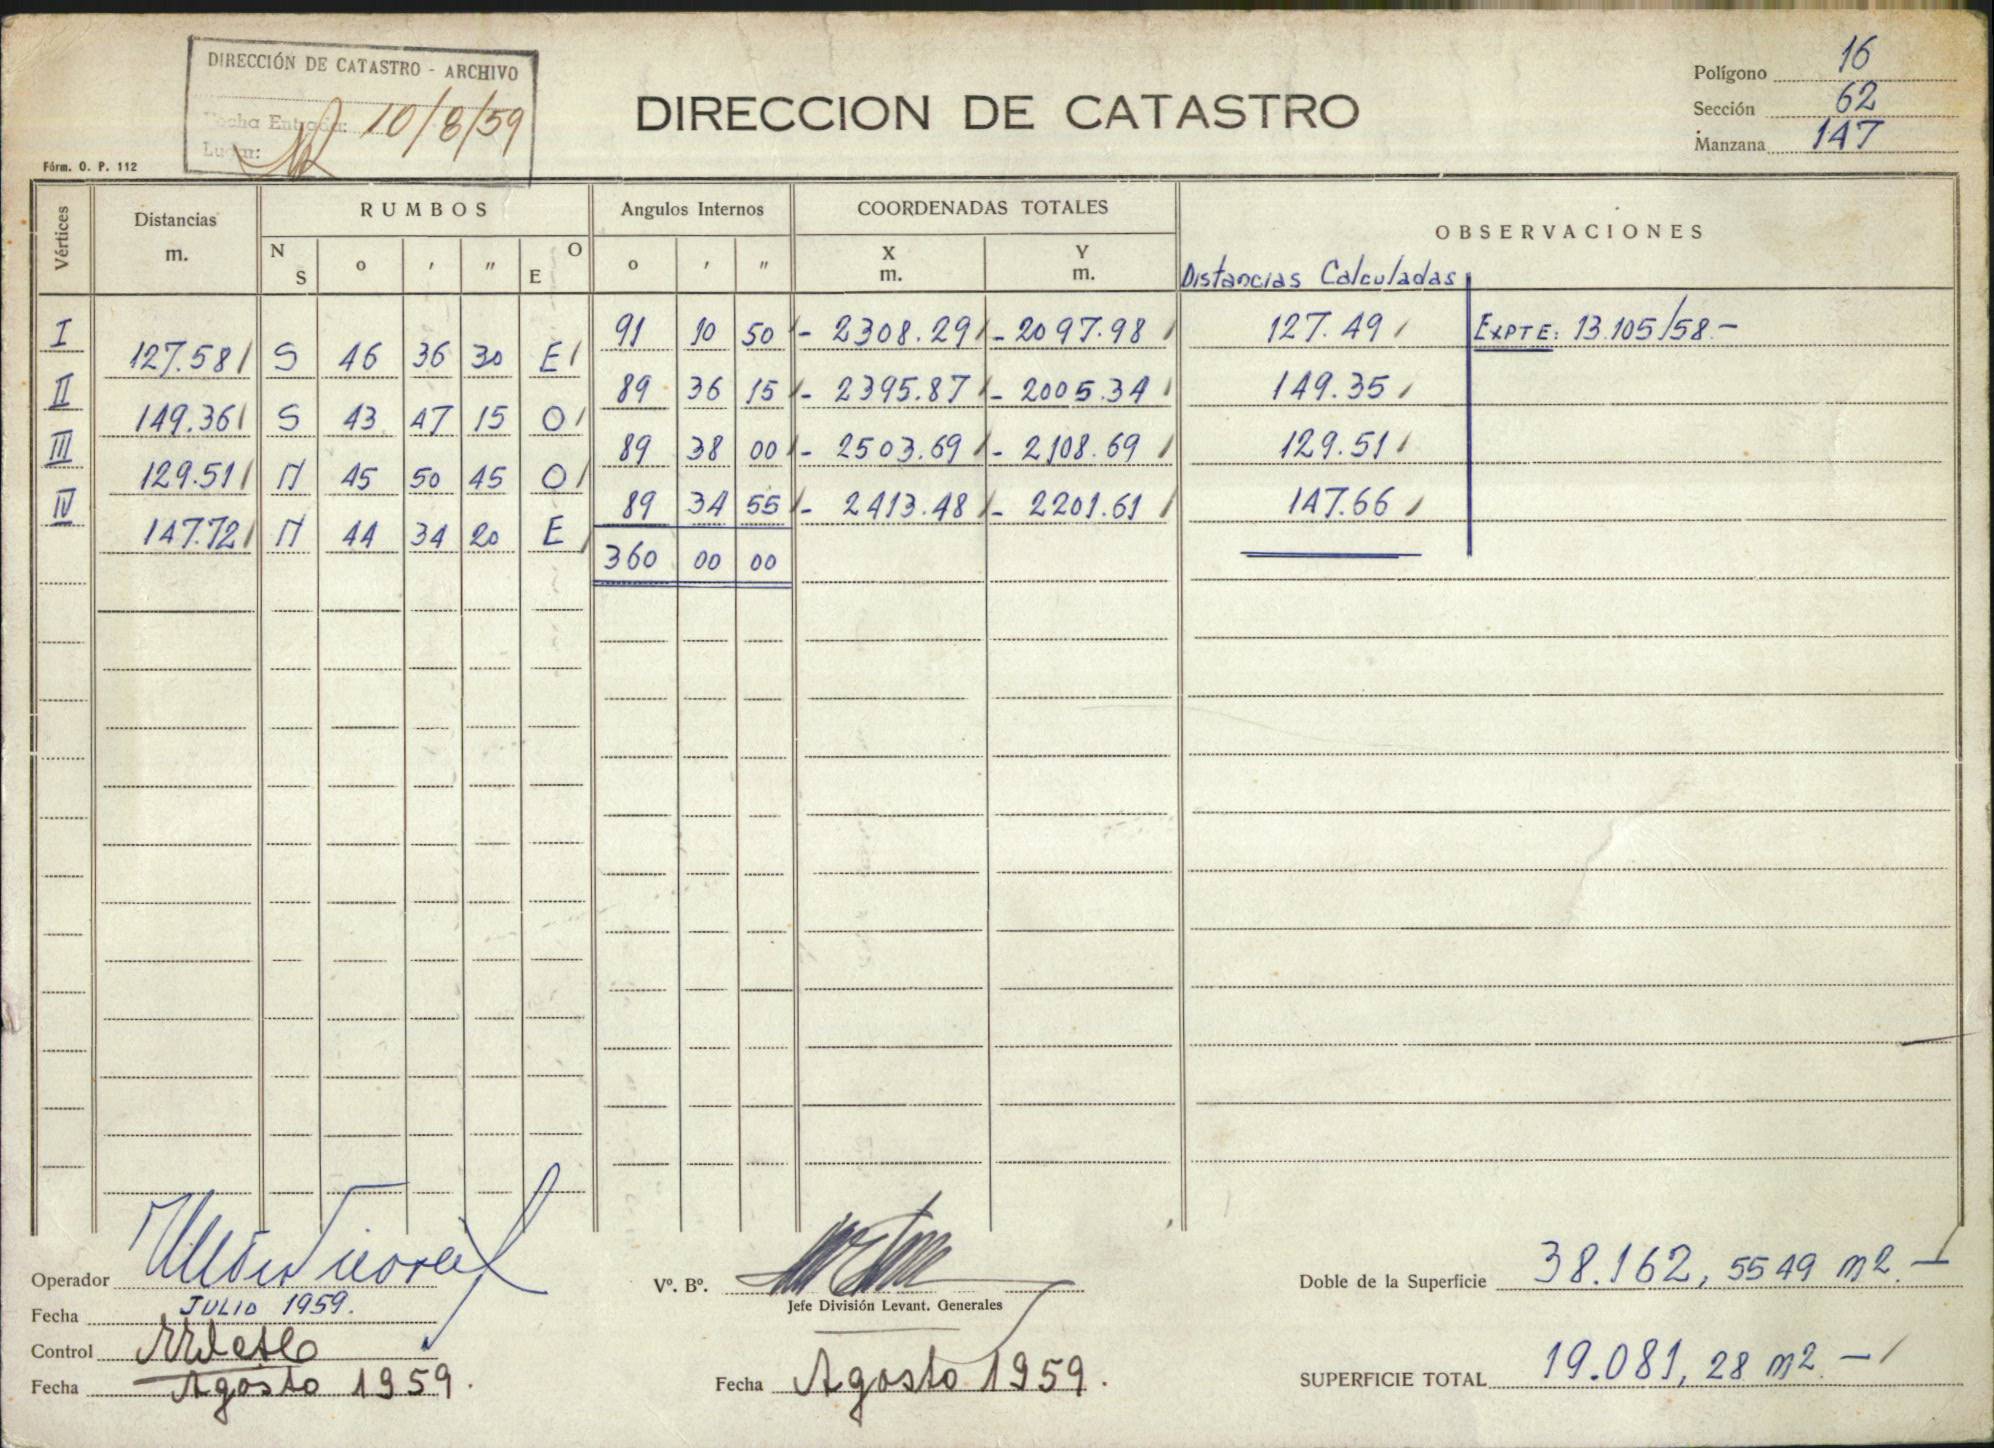 DIRECCIÓN DE CATASTRO - ARCHIVO
Fecha Entrada: 10/8/59
Lugar:
DIRECCION DE CATASTRO
Polígono 16
Sección 62
Manzana 147
Fórm. O. P. 112
Vértices Distancias m. RUMBOS N S o ' " E O Angulos Internos o ' " COORDENADAS TOTALES X m. Y m. OBSERVACIONES
Distancias Calculadas
I 91 10 50 - 2308.29 - 2097.98 127.49 EXPTE: 13.105/58.-
127.58 S 46 36 30 E
II 89 36 15 - 2395.87 - 2005.34 149.35
149.36 S 43 47 15 O
III 89 38 00 - 2503.69 - 2108.69 129.51
129.51 N 45 50 45 O
IV 89 34 55 - 2413.48 - 2201.61 147.66
147.72 N 44 34 20 E
360 00 00
Operador
Fecha JULIO 1959.
Control
Fecha Agosto 1959.
Vº. Bº.
Jefe División Levant. Generales
Fecha Agosto 1959.
Doble de la Superficie 38.162, 5549 m2.-
SUPERFICIE TOTAL 19.081, 28 m2 -